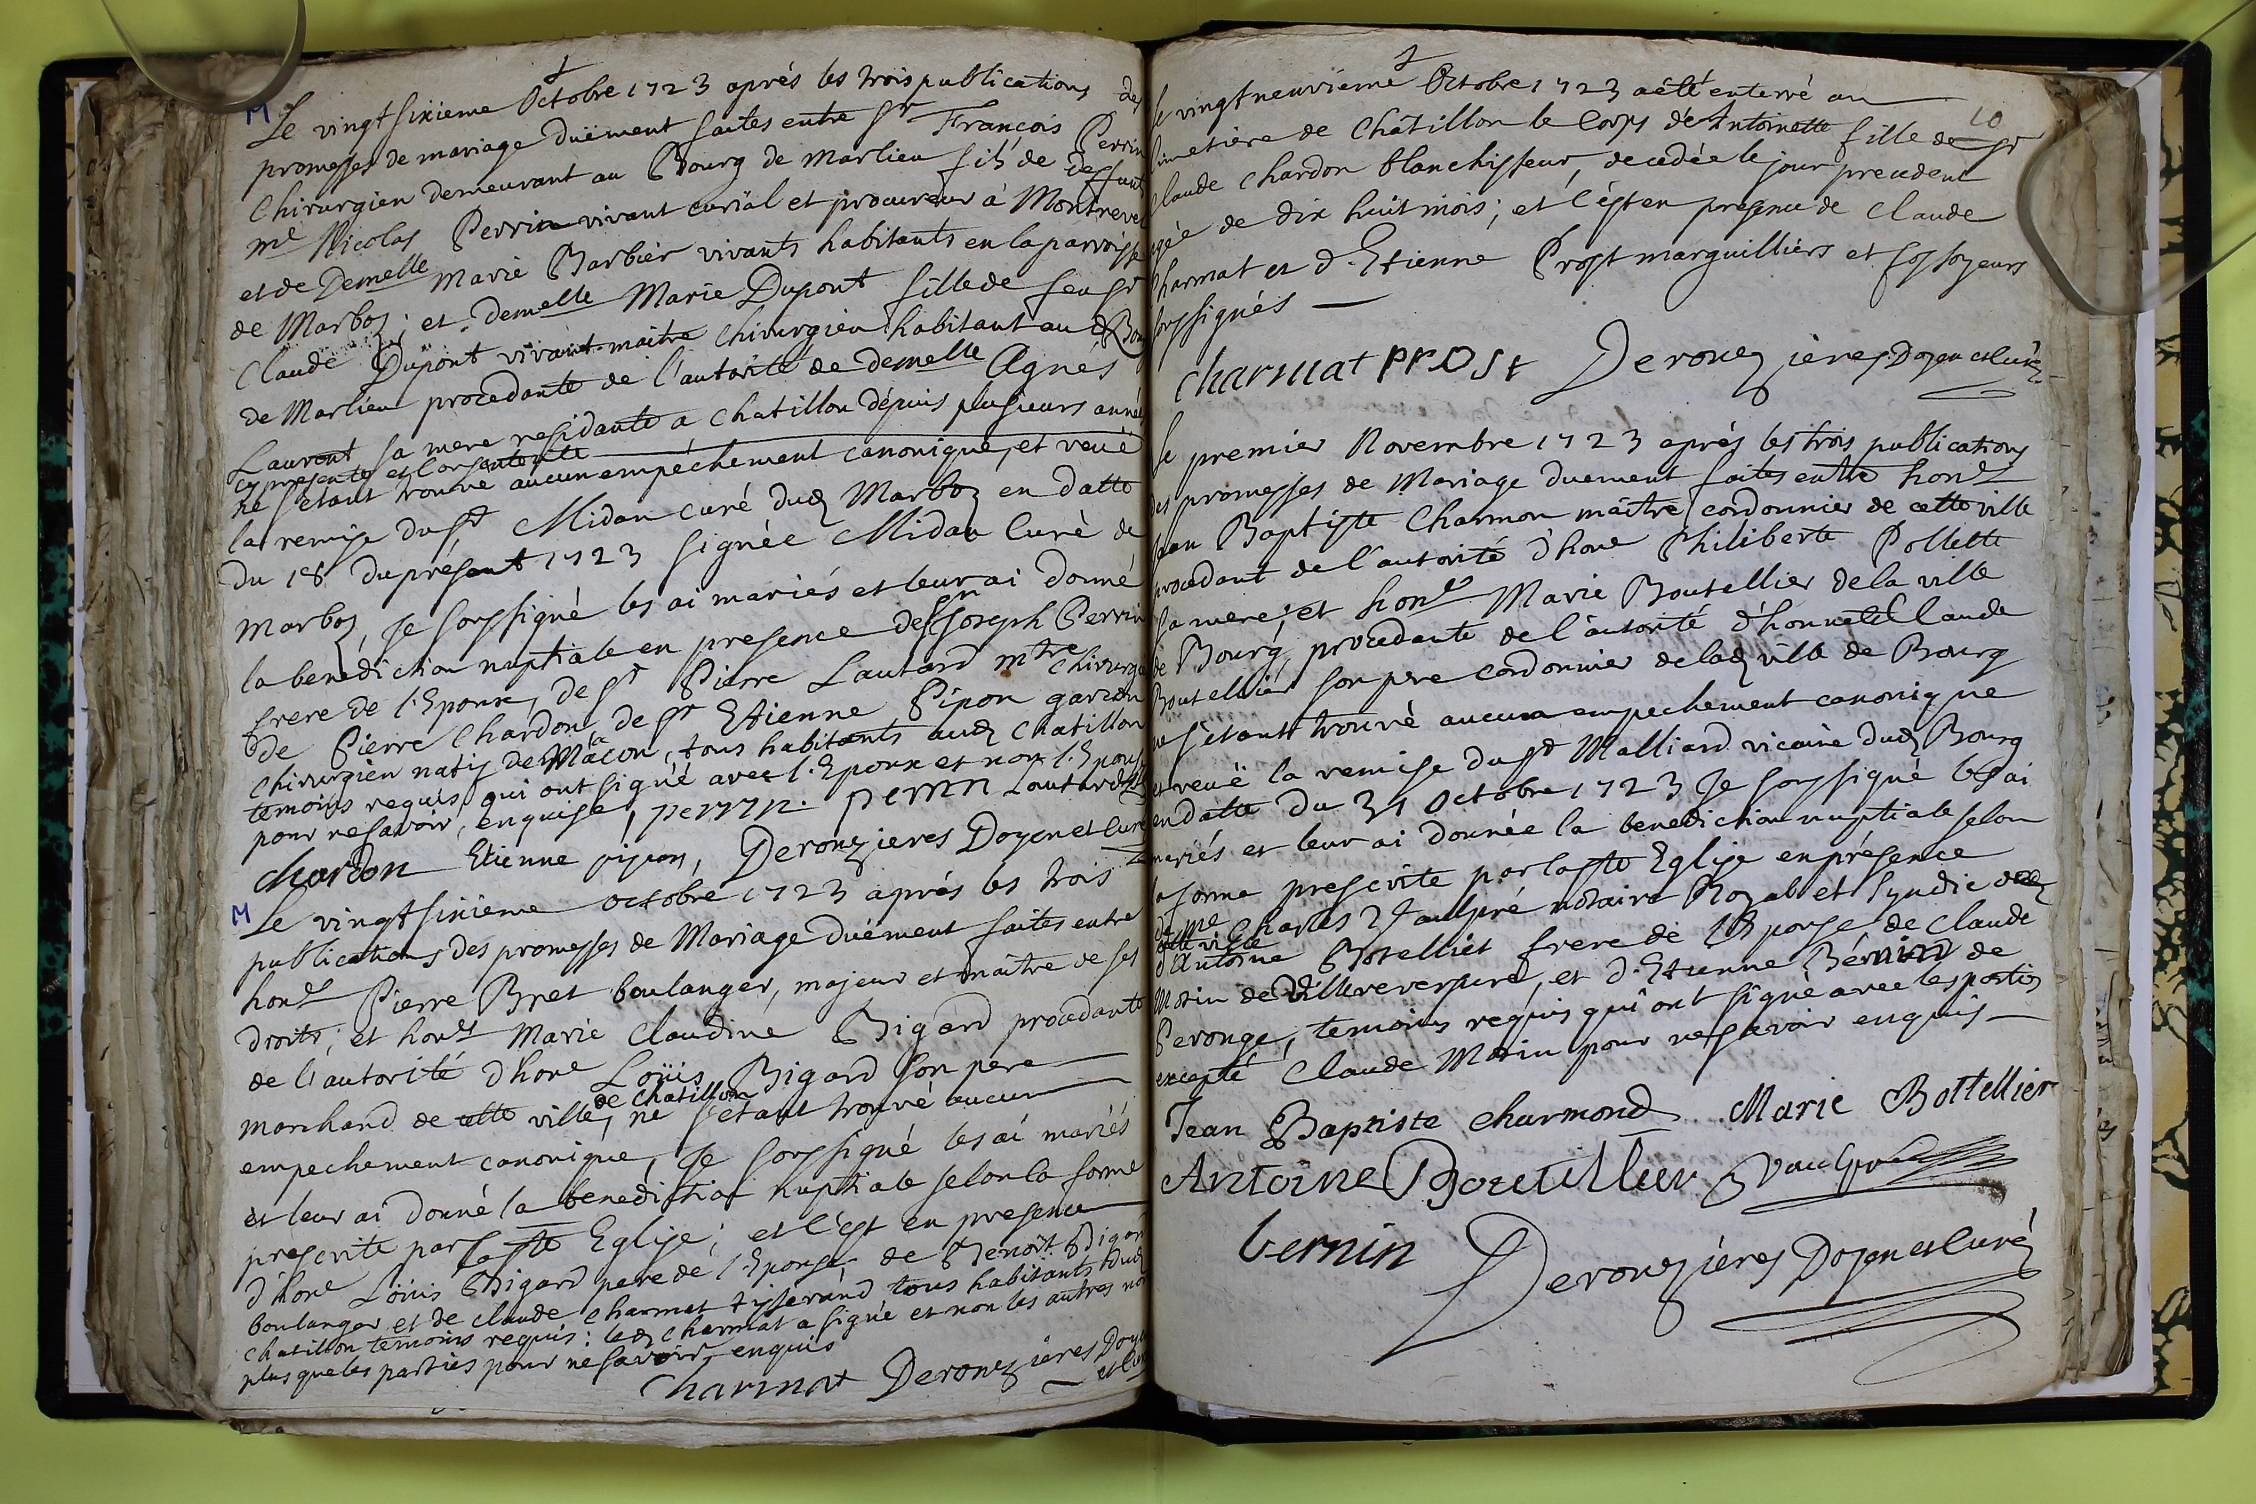 M
Le vingtsixieme Octobre 1723 aprés les trois publications des
promesses de mariage duëment faites entre Sr François Perrin
Chirurgien demeurant au Bourg de Marlieu fils de deffunt
me Nicolas Perrin vivant curial et procureur à Montrevel
et de Demelle Marie Barbier vivants habitants en la parroisse
de Marboz; et demelle Marie Dupont fille de feu Sr
Claude Dupont vivant maitre Chirurgien habitant aud Bourg
de Marlieu procedante de l'autorité de demelle Agnés
Laurent sa mere residante a chatillon dépuis plusieurs années
cy presente et consentente
ne s'etant trouvé aucun empéchement canonique, et veuë
la remise du Sr Midan curé dud Marboz en datte
du 18 du présent 1723 signée Midan Curé de
Marboz, Je soussigné les ai mariés et leur ai donné
la benediction nuptiale en presence de Sr Joseph Perrin
frere de l'Epoux, de Sr Pierre Lautard mtre Chirurgien
de Pierre Chardon, de Sr Etienne Pipon garcon
Chirurgien natif de Mâcon, tous habitants aud Chatillon
temoins requis, qui ont signé avec l'Epoux et non l'Epouse
pour ne savoir, enquise, perrin. perrin Lautard
chardon Etienne pipon, Derouzieres Doyen et Curé
M
Le vingtsixieme octobre 1723 aprés les trois
publications des promesses de Mariage duëment faites entre
hone Pierre Bret boulanger, majeur et maître de ses
droits; et hone Marie Claudine Bigard procedante
de l'autorité d'hone Loüis Bigard son pere
de Chatillon
marchand de cette ville, ne s'etant trouvé aucun
empechement canonique, Je soussigné les ai mariés
et leur ai donné la benediction nuptiale selon la forme
prescrite par la Ste Eglise; et c'est en presence
d'hone Loüis Bigard pere de l'Epouse, de Benoît Bigard
boulanger et de claude charmat tisserand tous habitants dud
chatillon temoins requis: led charmat a signé et non les autres non
plus que les parties pour ne savoir, enquis
Charmat Derouzières Doyen
et Curé
10
Le vingtneuvième Octobre 1723 a été enterré au
cimetiere de Châtillon le Corps de Antoinette fille de Sr
Claude Chardon blanchisseur, decedée le jour precedent
agée de dix huit mois; et c'est en presence de Claude
Charmat et d'Etienne Prost marguilliers et fossoyeurs
soussignés
charmat prost Derouzières Doyen et Curé
Le premier Novembre 1723 aprés les trois publications
des promesses de Mariage duement faites entre hone
Jean Baptiste Charmon maître cordonnier de cette ville
procedant de l'autorité d'hone Philiberte Pollette
sa mere; et hone Marie Boutellier de la ville
de Bourg, procedante de l'autorité d'honnete Claude
Boutellier son pere cordonnier de lad ville de Bourg
ne s'etant trouvé aucun empechement canonique
et veuë la remise du Sr Malliard vicaire dud Bourg
en datte du 31 Octobre 1723 Je soussigné les ai
mariés et leur ai donnée la benediction nuptiale selon
la forme prescrite par la Ste Eglise en présence
de me Charles Vaulpré notaire Royal et Syndic de
cette ville
d'Antoine Botellier frere de l'Epouse, de Claude
Morin de Villereversure, et d'Etienne Bernin de
Peronge, temoins requis qui ont signé avec les parties
excepté Claude Morin pour ne savoir enquis
Jean Baptiste charmond Marie Bottellier
Antoine Boutillier Vaulpré
bernin Derouzières Doyen et Curé